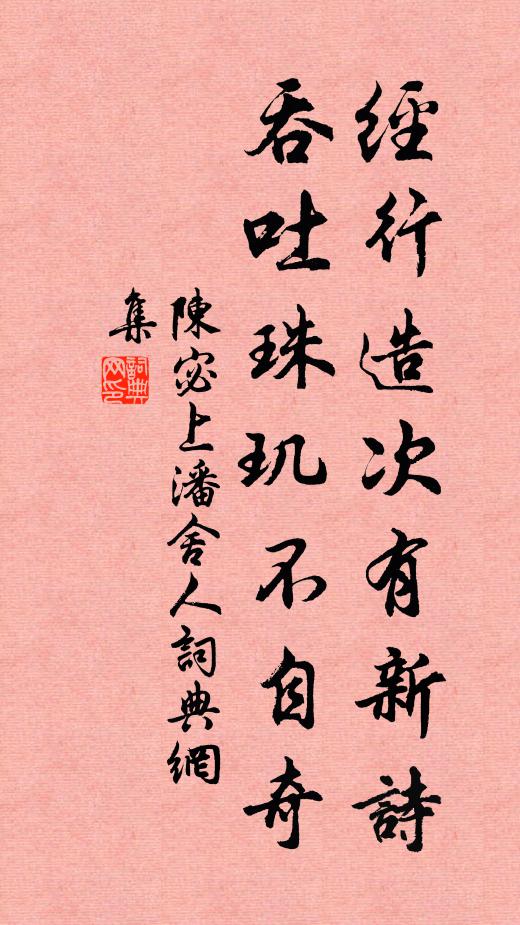 經行造次有新詩
吞吐珠玑不自奇
陳宓上潘舍人詞典網
集
詞典網印